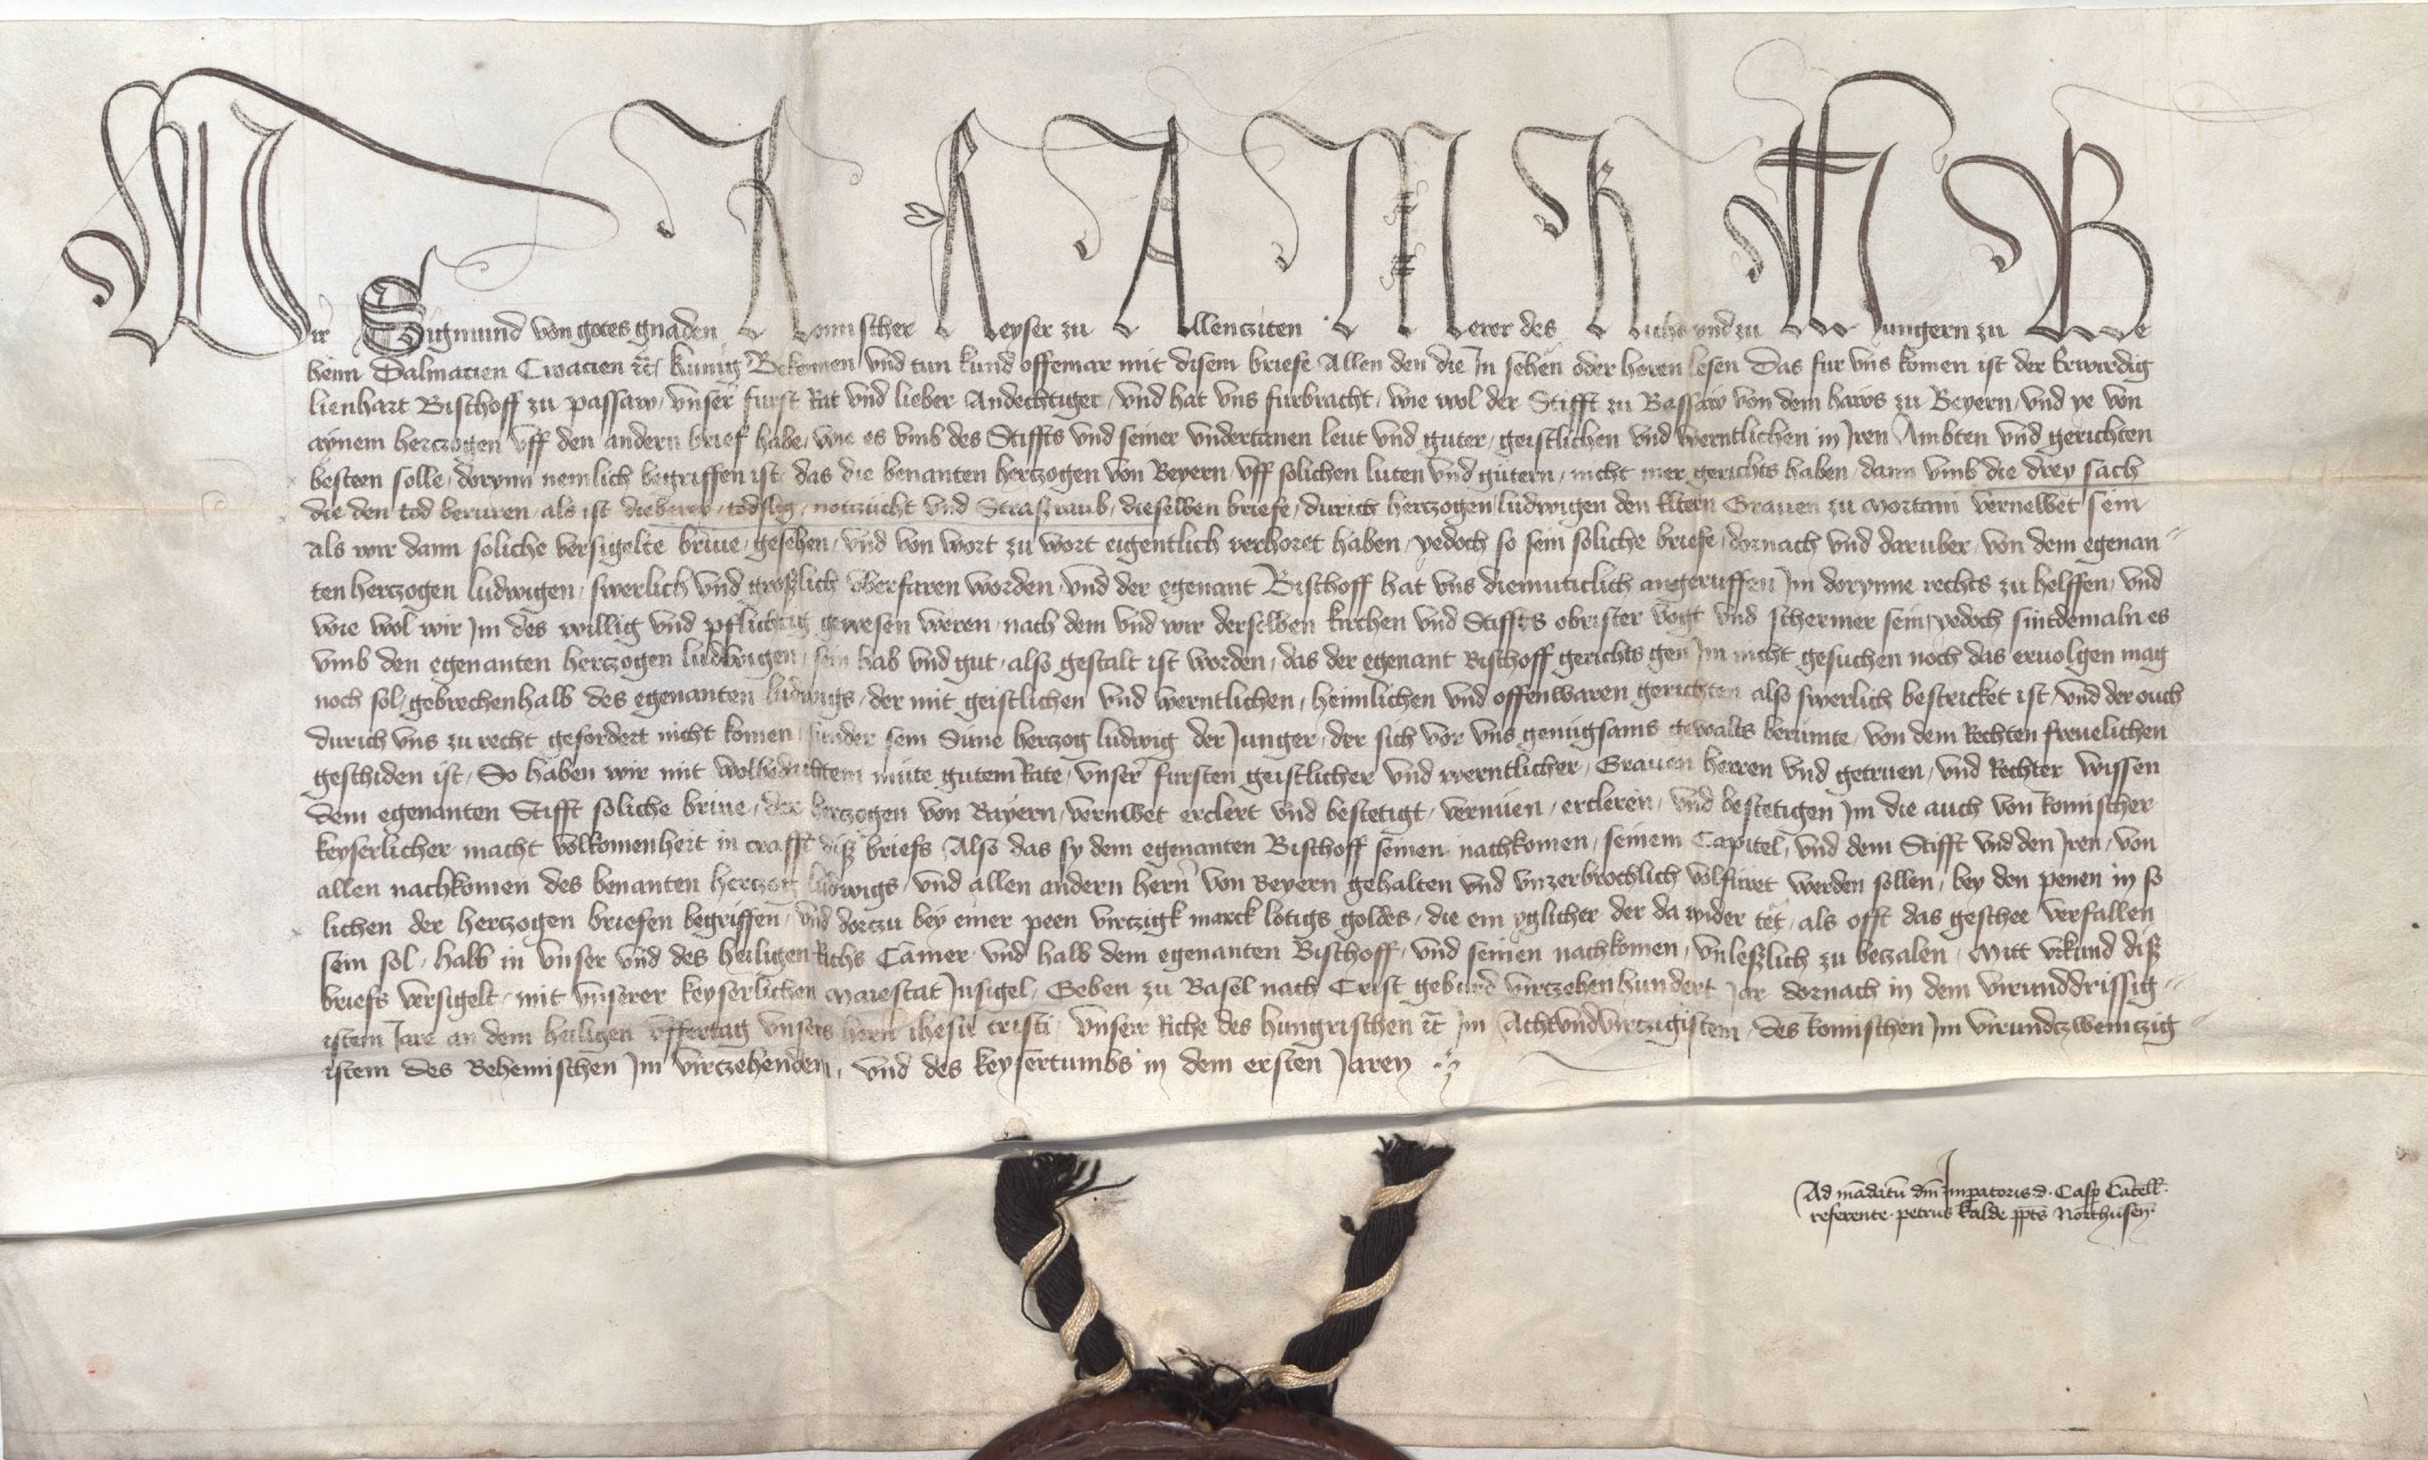 Wir Sigmund von gotes gnaden Romischer Keyser zu Allenczten Merer des Richs vnd zu Hungern zu Be
heim Dalmacien Croacien etc kunig Bekennen vnd tun kund offemar mit disem briefe Allen den die In sehen oder horen lesen Das fur vns komen ist der Erwirdig
lienhart Bischoff zu passaw, vnser furst Rat vnd lieber Andechtiger, vnd hat vns furbracht, wie wol der Stifft zu Bassaw von dem haws zu Beyern, vnd ye von
aynem herczogen vff den andern brief habe, wie es vmb des Stiffts vnd seiner vndertanen leut vnd guter, geistlichen vnd werntlichen in Iren Ambten vnd gerichten
besteen solle, dorynn nemlich begriffen ist, das die benanten herczogen von Beyern, vff solichen luten vnd gutern, nicht mer gerichts haben, dann vmb die drey sach
die den tod beruren, als ist dieberey, todsleg, notzucht vnd Straßraub, dieselben briefe, durich herczogen ludwigen den Eltern Grauen zu Mortani vernewet sein
als wir dann soliche versigelte briue, gesehen, vnd von wort zu wort eigentlich verhoret haben, yedoch so sein soliche briefe, dornach vnd daruber, von dem egenan
ten herczogen ludwigen, swerlich vnd groslich vberfaren worden, vnd der egenant Bischoff hat vns diemuticlich angeruffen Im dorynne rechts zu helffen, vnd
wie wol wir Im des willig vnd pflichtig gewesen weren, nach dem vnd wir derselben kirchen vnd Stiffts obrister vogt vnd schermer sein, yedoch sintdemaln es
vmb den egenanten herczogen ludwigen, sein hab vnd gut, also gestalt ist worden, das der egenant Bischoff gerichts gen Im nicht gesuchen noch das eruolgen mag
noch sol, gebrechenhalb des egenanten ludwigs, der mit geistlichen vnd werntlichen, heimlichen vnd offenwaren gerichten also swerlich bestricket ist, vnd der ouch
durich vns zu recht gefordert nicht komen, sunder sein Sune herczog ludwig der Junger, der sich vor vns genugsams gewalts berumte, von dem Rechten freuelichen
geschiden ist, So haben wir mit wolbedachtem mute gutem Rate, vnser fursten geistlicher vnd werntlicher, Grauen herren vnd getruen, vnd Rechter wissen
dem egenanten Stifft soliche briue, der herczogen von Bayern, vernwet erclert vnd bestetigt, vernuen, ercleren, vnd bestetigen Im die auch von Romischer
keyserlicher macht volkomenheit in crafft diß briefs Also das sy dem egenanten Bischoff seinen nachkomen, seinem Capitel, vnd dem Stifft vnd den Iren, von
allen nachkomen des benanten herczog ludwigs, vnd allen andern hern von Beyern gehalten vnd vnzerbrochlich volfuret werden sollen, bey den penen in so
lichen der herczogen briefen begriffen, vnd dorczu bey einer peen virczigk marck lotigs goldes, die ein yglicher der da wider tet, als offt das geschee verfallen
sein sol, halb in vnser vnd des heiligen Richs Camer vnd halb dem egenanten Bischoff, vnd seinen nachkomen, vnleßlich zu beczalen, Mitt vrkund diß
briefs versigelt, mit vnserer keyserlichen Maiestat Insigel, Geben zu Basel nach Crist geburd virczehenhundert Jar dornach in dem virunddrissig
istem Jare an dem heiligen vffertag vnsers hern ihesu cristi, vnserr Riche des hungrischen etc Im Achtvndvirczigistem, des Romischen Im virundczweinczig
istem des Behemischen Im virczehenden, vnd des keysertumbs in dem ersten Jaren
Ad mādatū dm̄ Impatoris d. Casp Cācell.
referente petrus kalde ppts Northusen